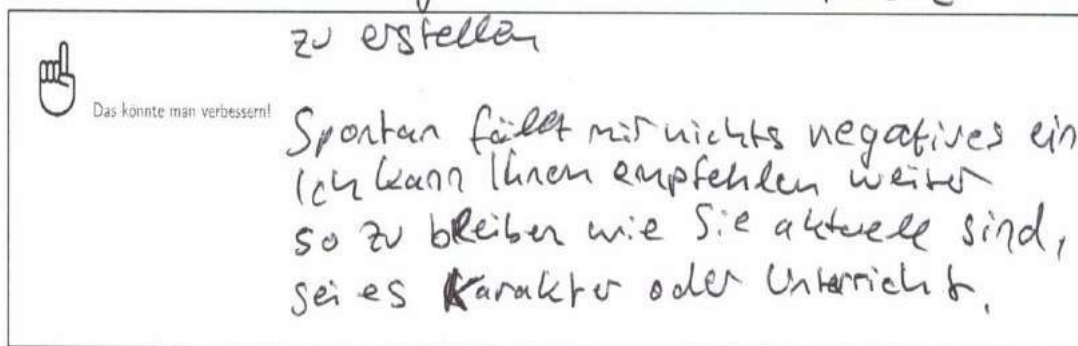 zu erstellen
Das könnte man verbessern!
Spontan fällt mir nichts negatives ein
Ich kann Ihnen empfehlen weiter
so zu bleiben wie Sie aktuell sind,
sei es Karakter oder Unterricht.